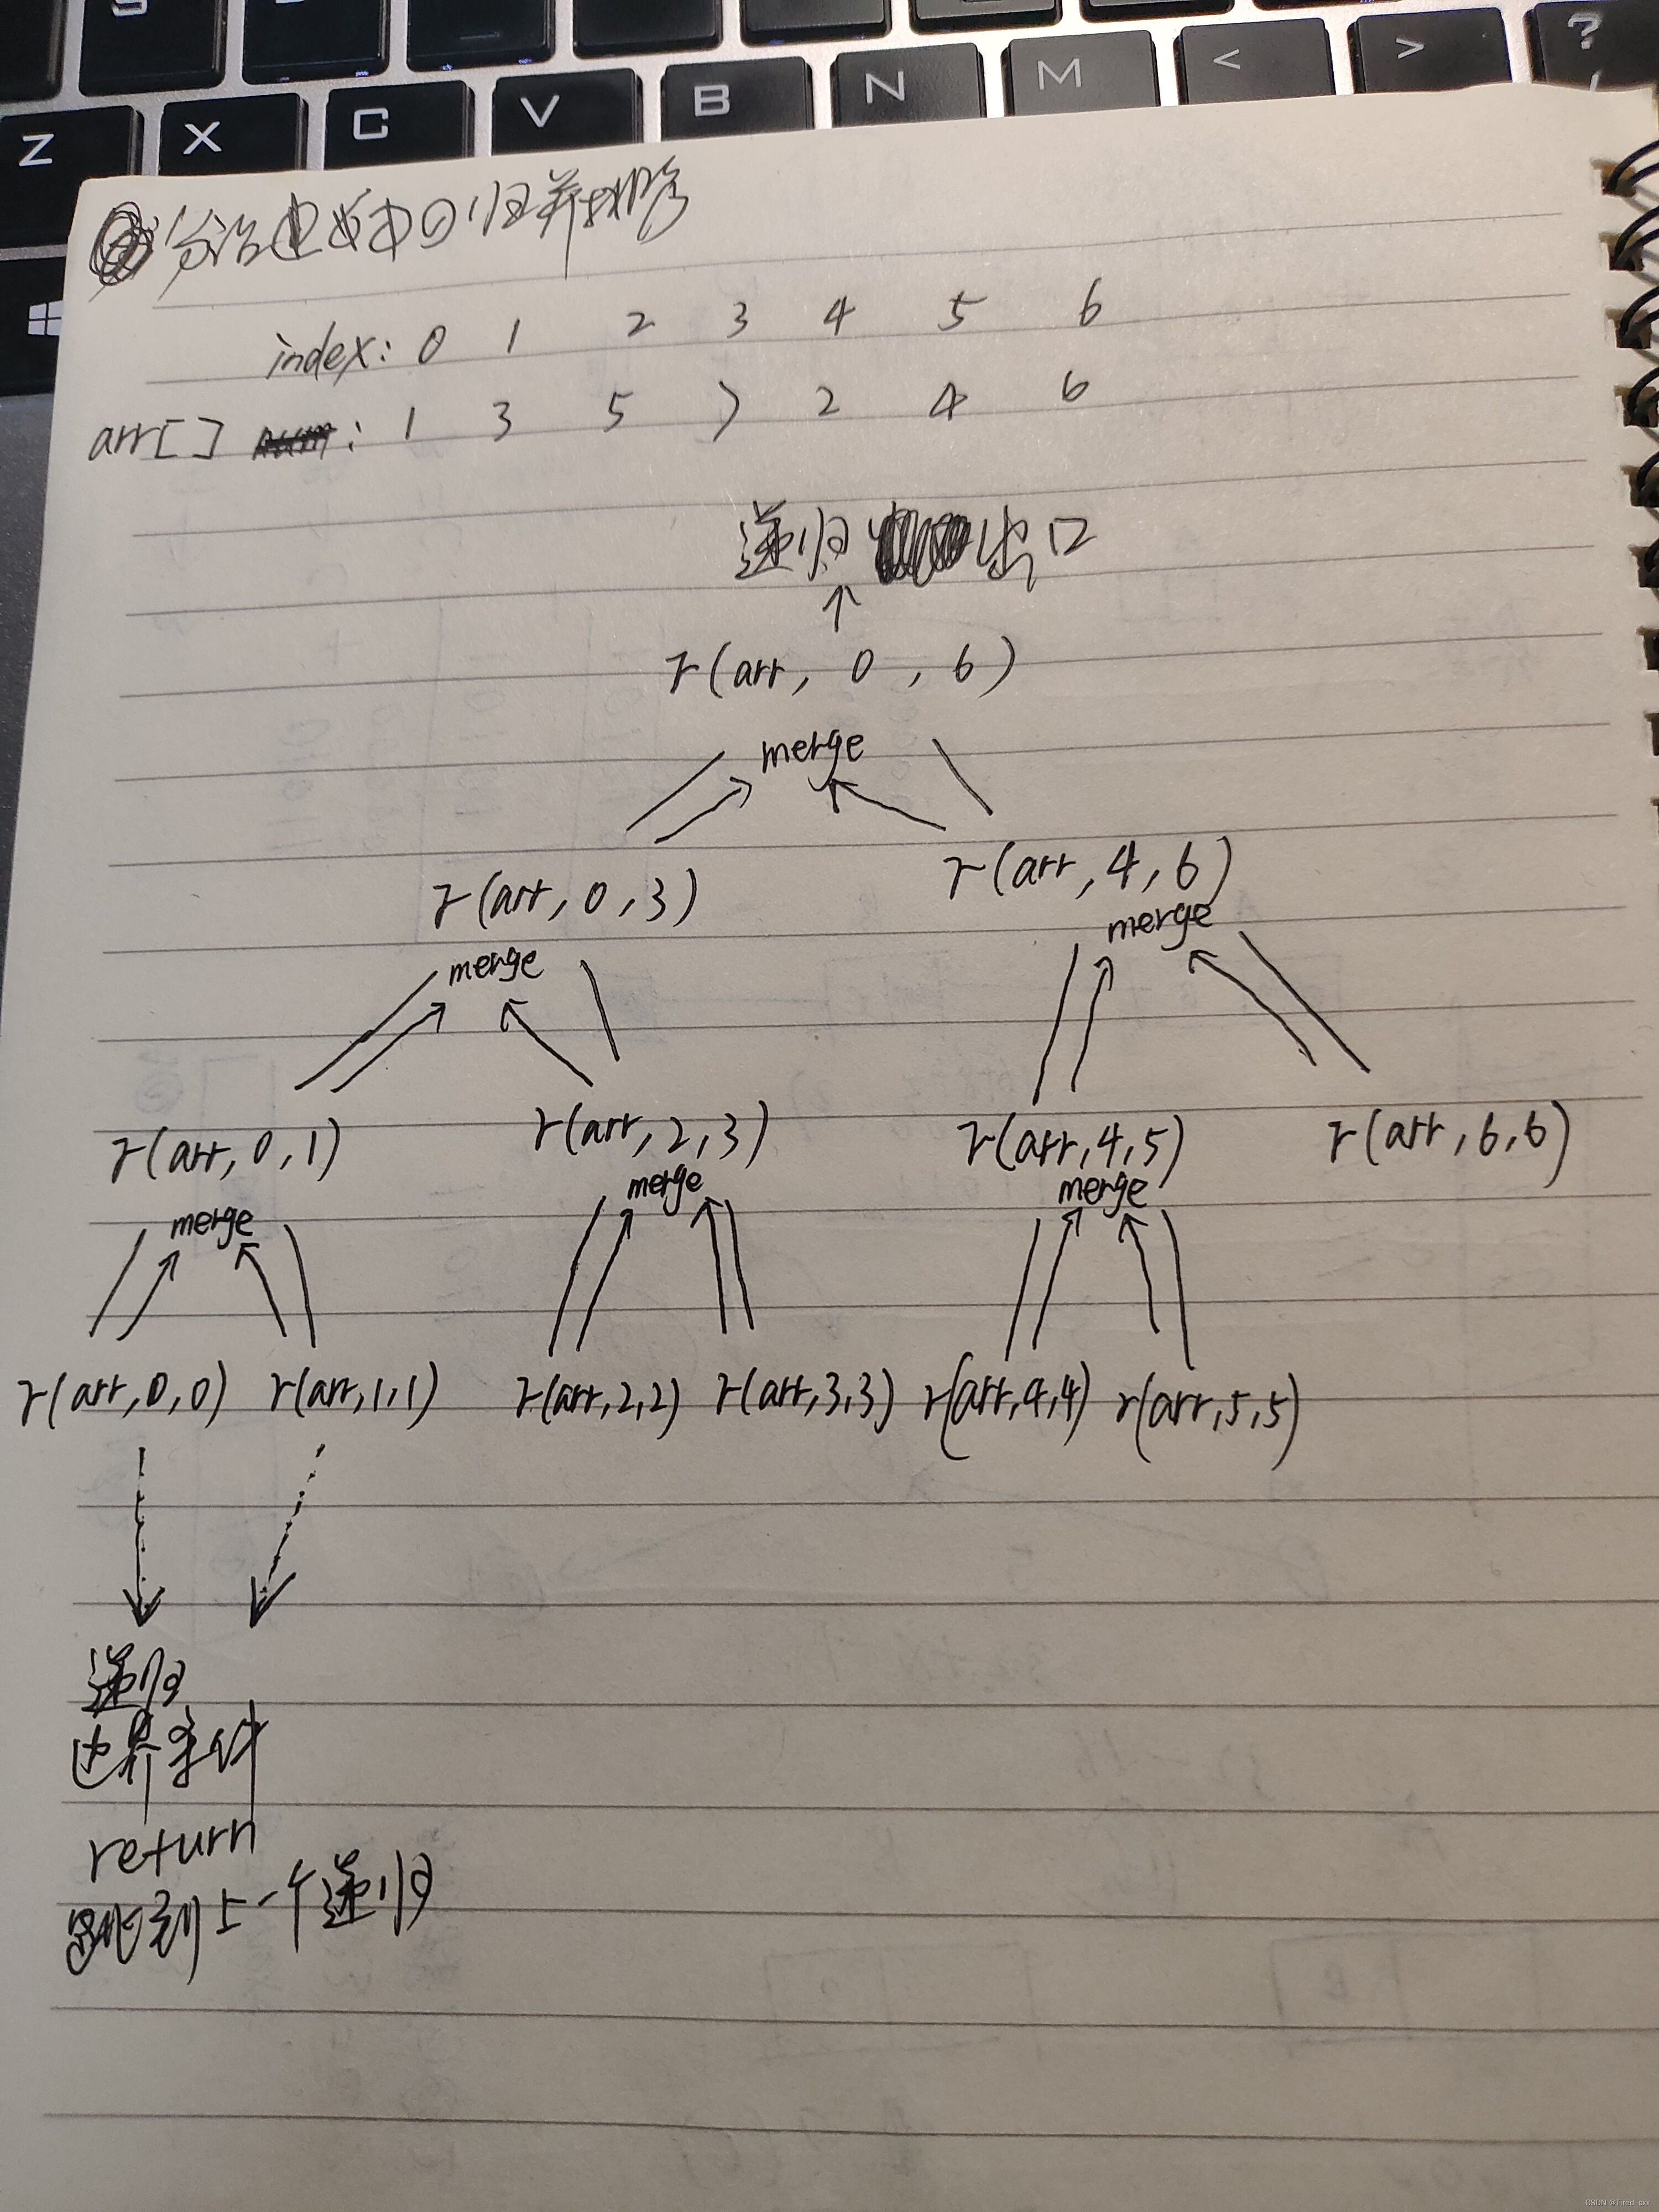 Z X C V B N M < > ?
分治 归并排序
index: 0 1 2 3 4 5 6
arr[] : 1 3 5 7 2 4 6
递归 出口
r(arr, 0, 6)
merge
r(arr, 0, 3) r(arr, 4, 6)
merge merge
r(arr, 0, 1) r(arr, 2, 3) r(arr, 4, 5) r(arr, 6, 6)
merge merge merge
r(arr, 0, 0) r(arr, 1, 1) r(arr, 2, 2) r(arr, 3, 3) r(arr, 4, 4) r(arr, 5, 5)
递归
边界条件
return
到上一个递归
CSDN @Tired_cxx